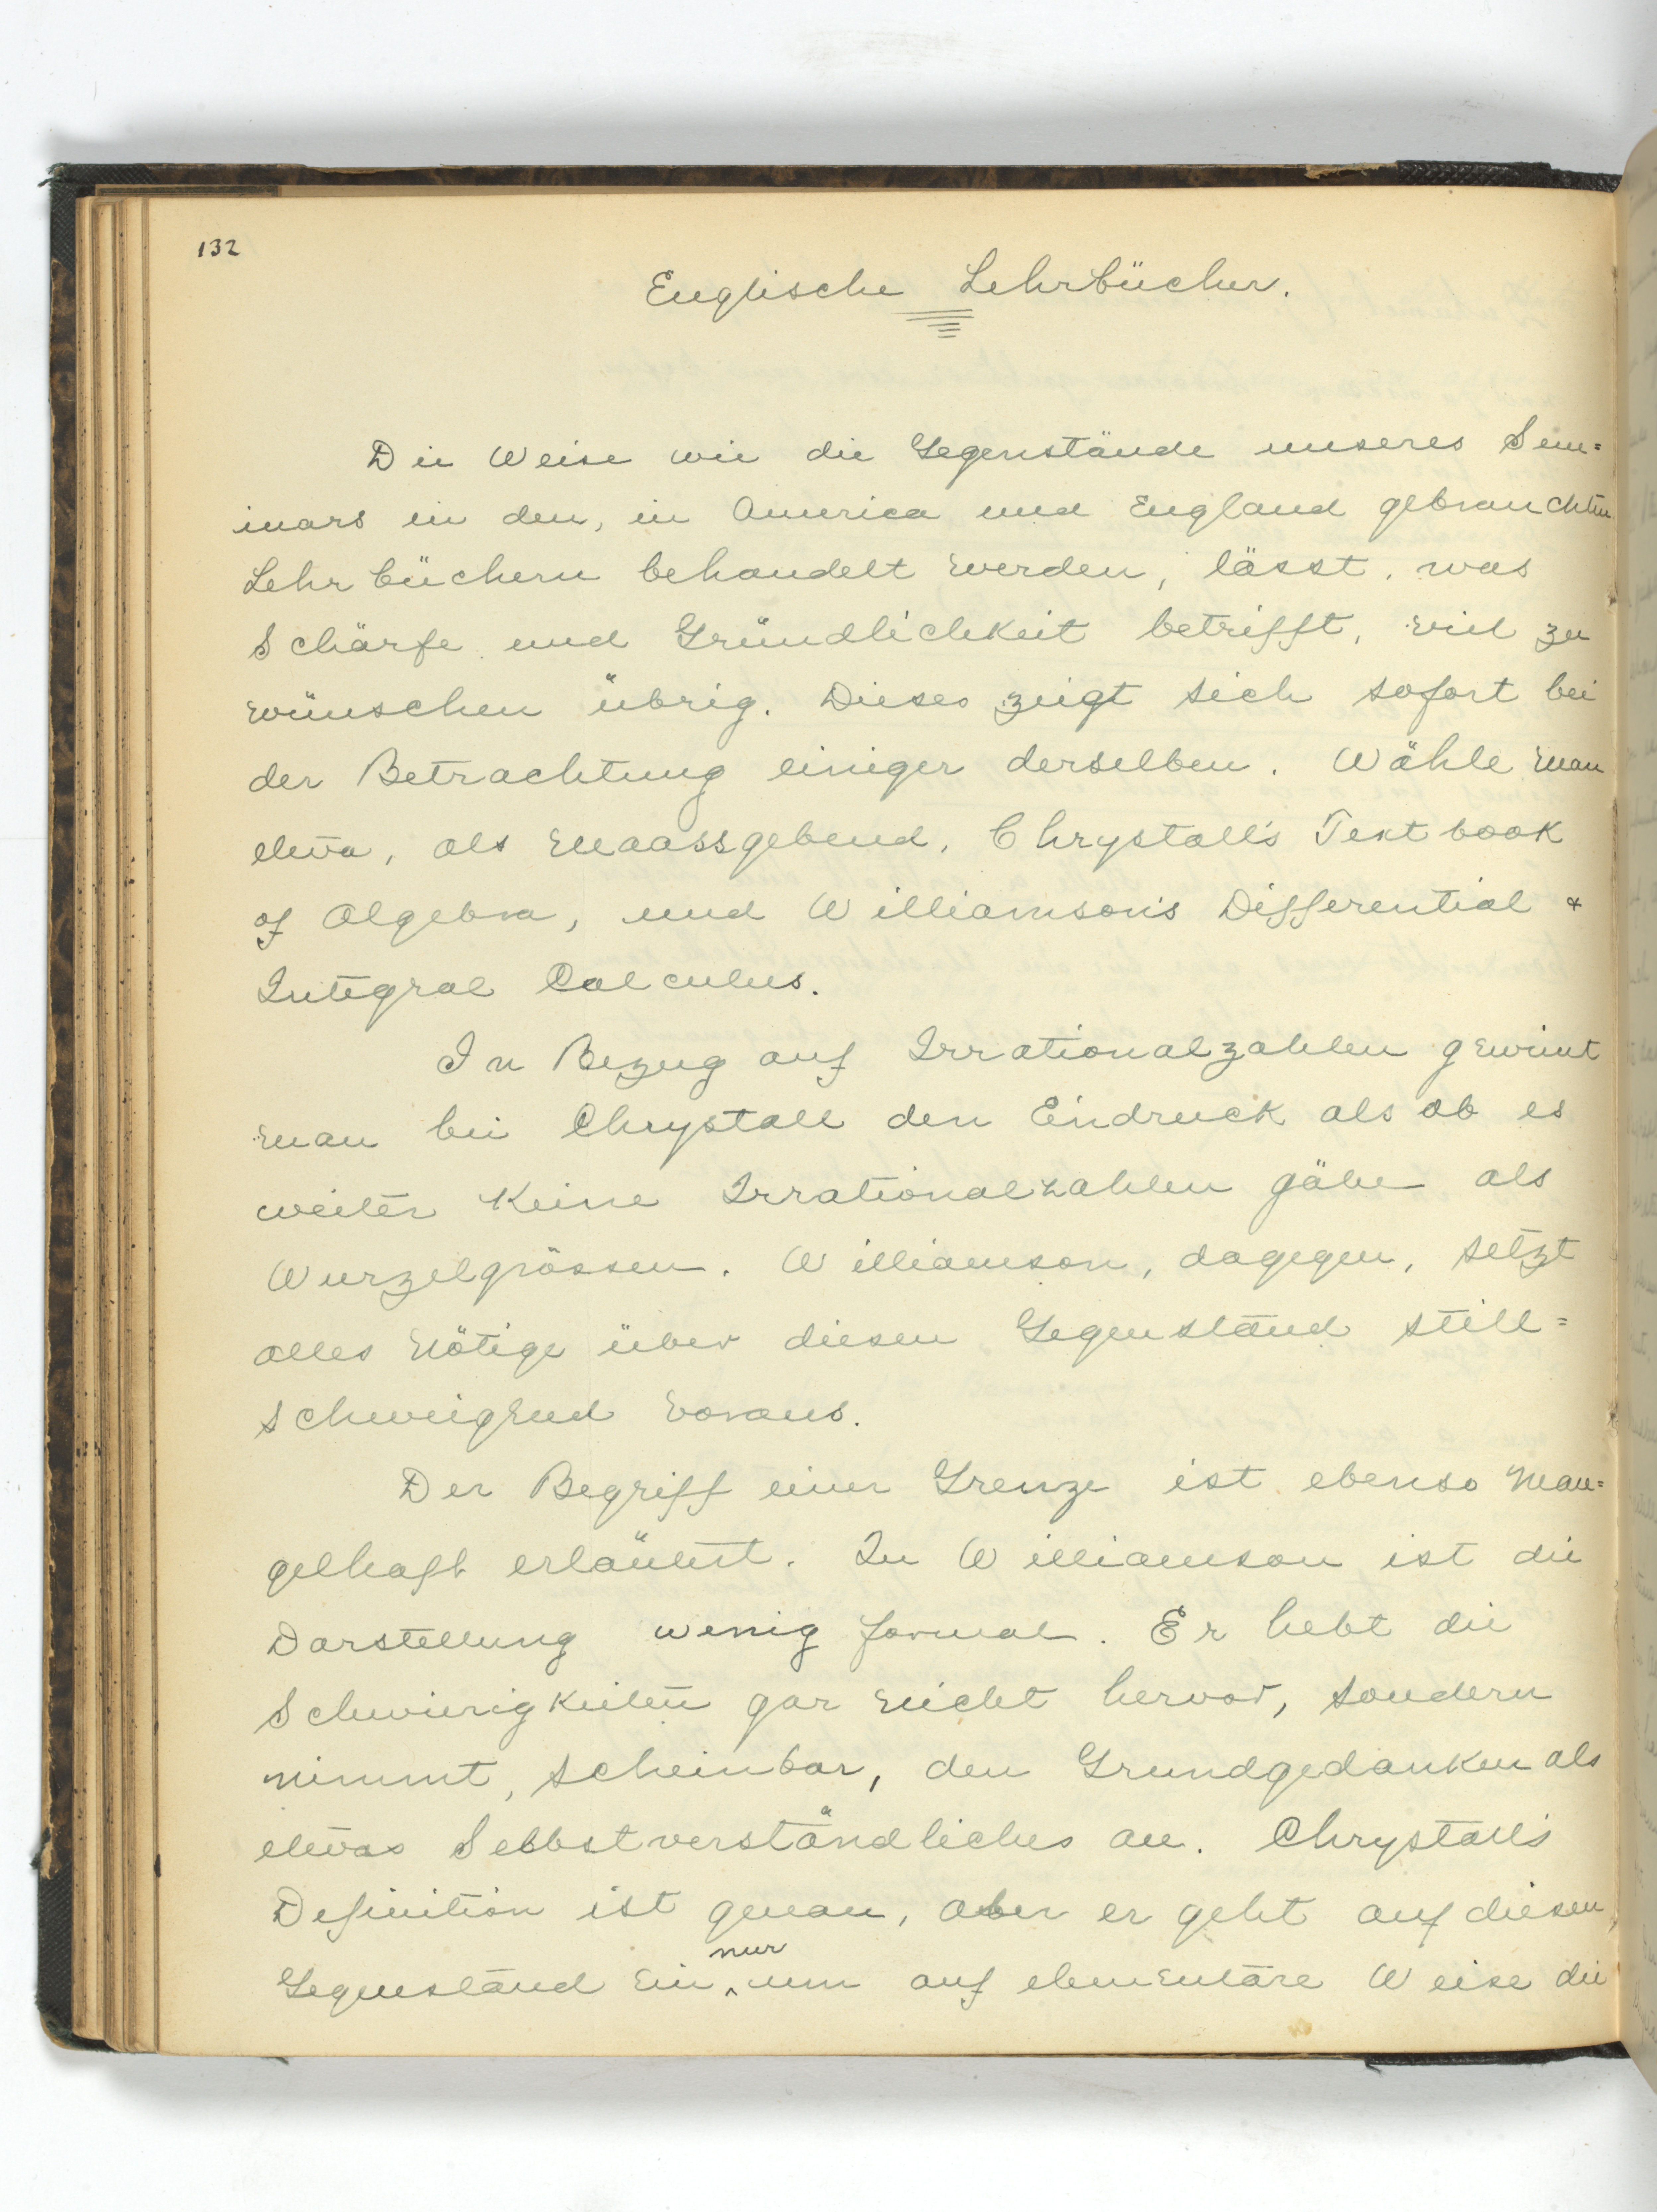 132
Englische Lehrbücher.
Die Weise wie die Gegenstände unseres Sem=
inars in den, in America und England gebrauchten
Lehrbüchern behandelt werden, lässt, was
Schärfe und Gründlichkeit betrifft, viel zu
wünschen übrig. Dieses zeigt sich sofort bei
der Betrachtung einiger derselben. Wähle man
etwa, als maassgebend, Chrystall's Textbook
of Algebra, und Williamson's Differential &
Integral Calculus.
In Bezug auf Irrationalzahlen gewinnt
man bei Chrystall den Eindruck als ob es
weiter keine Irrationalzahlen gäbe als
Wurzelgrössen. Williamson, dagegen, setzt
alles nötige über diesen Gegenstand still=
schweigend voraus.
Der Begriff einer Grenze ist ebenso man=
gelhaft erläutert. In Williamson ist die
Darstellung wenig formal. Er hebt die
Schwierigkeiten gar nicht hervor, sondern
nimmt, scheinbar, den Grundgedanken als
etwas Selbstverständliches an. Chrystall's
Definition ist genau, aber er geht auf diesen
Gegenstand ein, nur um auf elementäre Weise die